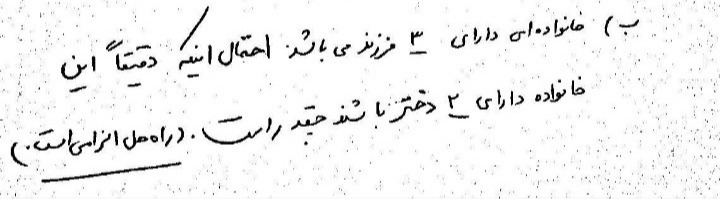 ب) خانواده‌ای دارای ۳ فرزند می باشد احتمال اینکه دقیقاً این
خانواده دارای ۲ دختر باشند چقدر است. (راه حل الزامی است.)